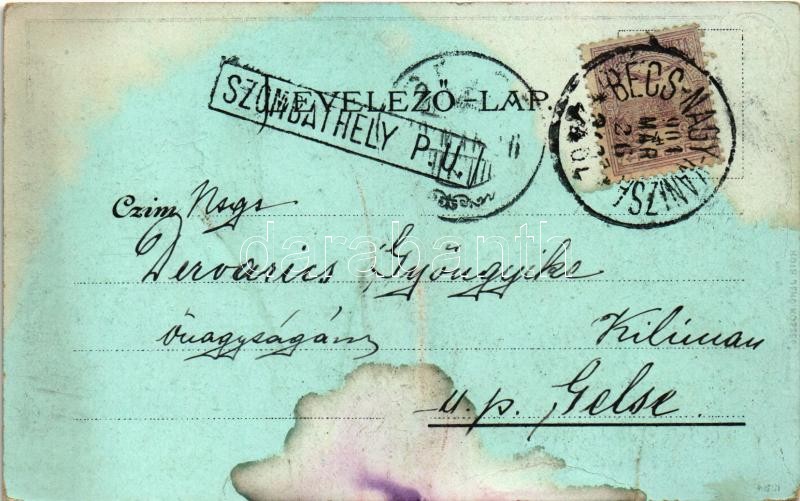 LEVELEZŐ-LAP
SZOMBATHELY P.U.
BÉCS-NAGY-KANIZSA
MÁR
26
04
Czim Nags
Dervarics Gyöngyike
őnagyságán
Kilimán
u. p. Gelse
darabanth